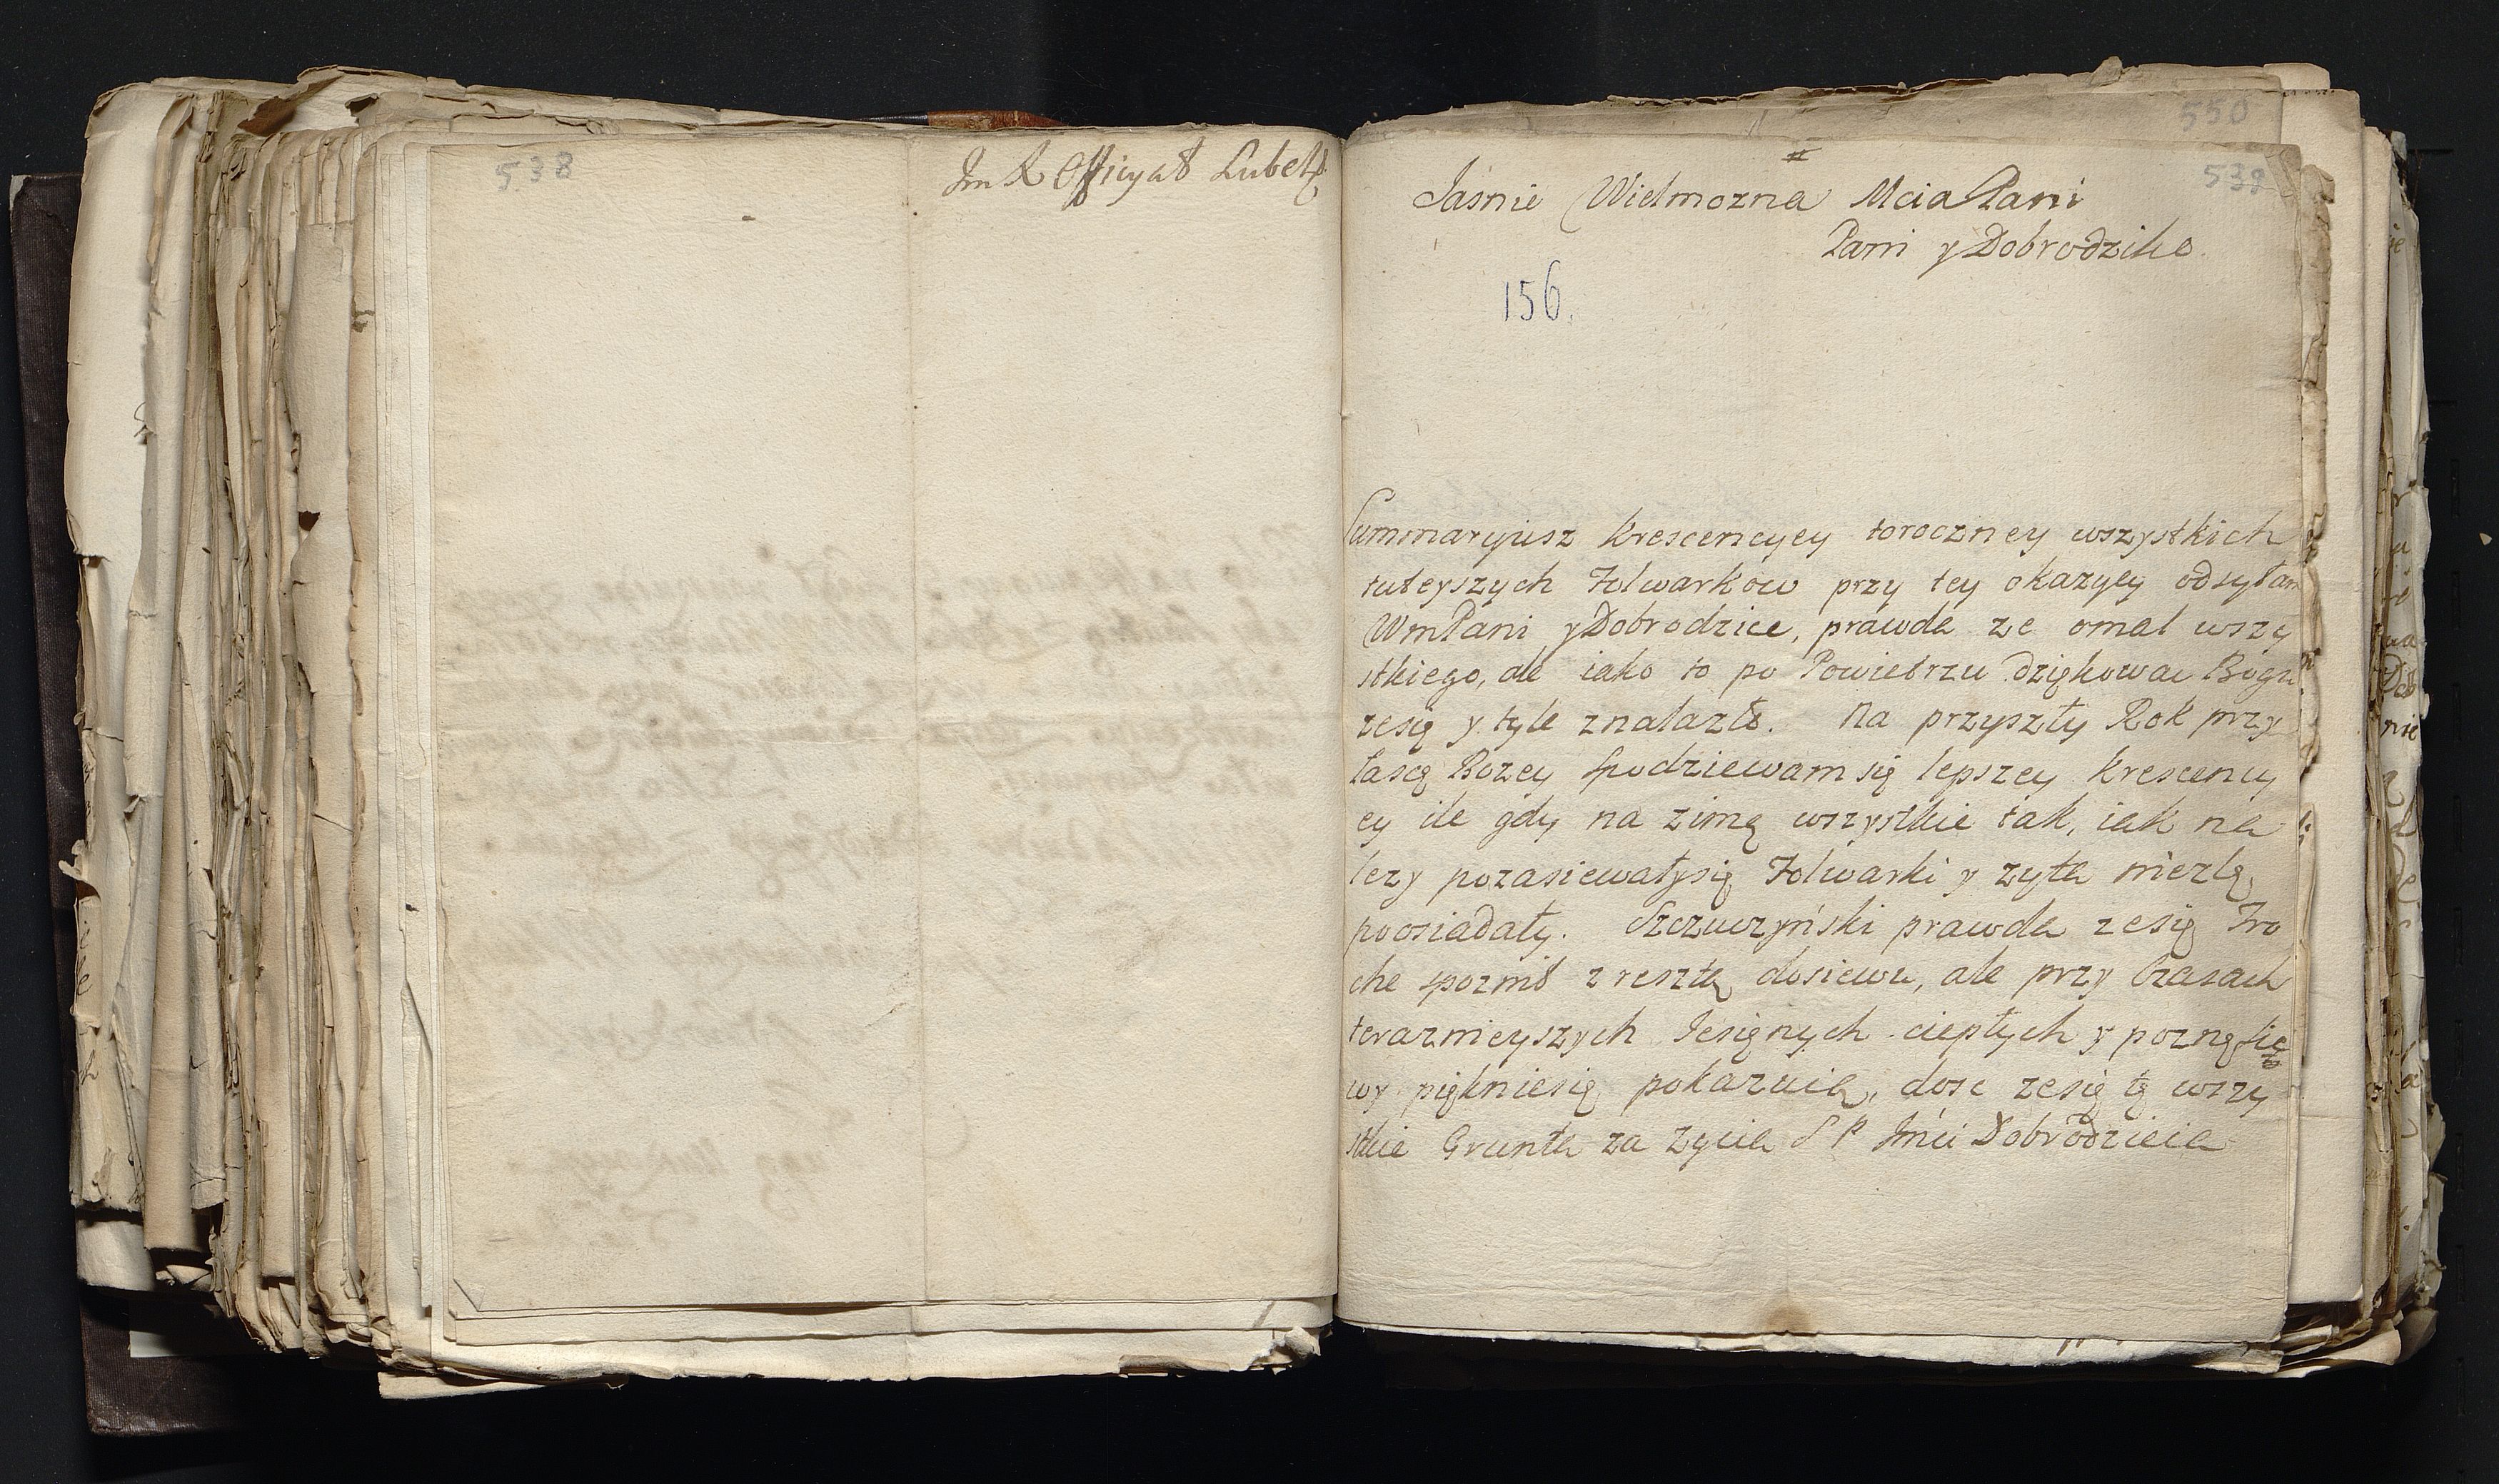 538
Im X Officyał Lubelſ
550
539
Jaśnie Wielmozna Mcia Pani
Pani y Dobrodziko
156.
Summaryusz krescencyey toroczney wszystkich
tuteyszych Folwarkow przy tey okazyey odsyłam
WmPani y Dobrodzice, prawda ze omal wszy
stkiego, ale iako to po Powietrzu dziękowac Bogu
zesię y tyle znalazło. Na przyszły Rok przy
łascę Bozey spodziewam się lepszey krescency
ey ile gdy na zimę wszystkie tak, iak na
lezy pozasiewałysię Folwarki y zyta niezlę
poosiadały. Szczuczyński prawda zesię Tro
che spoznił z resztą dosiewu, ale przy Czasach
teraznieyszych Iesięnych ciepłych y poznę sie
wy piękniesię pokazuią, dosc zesię tę wszy
stkie Grunta za zycia S P Imći Dobrodzieia